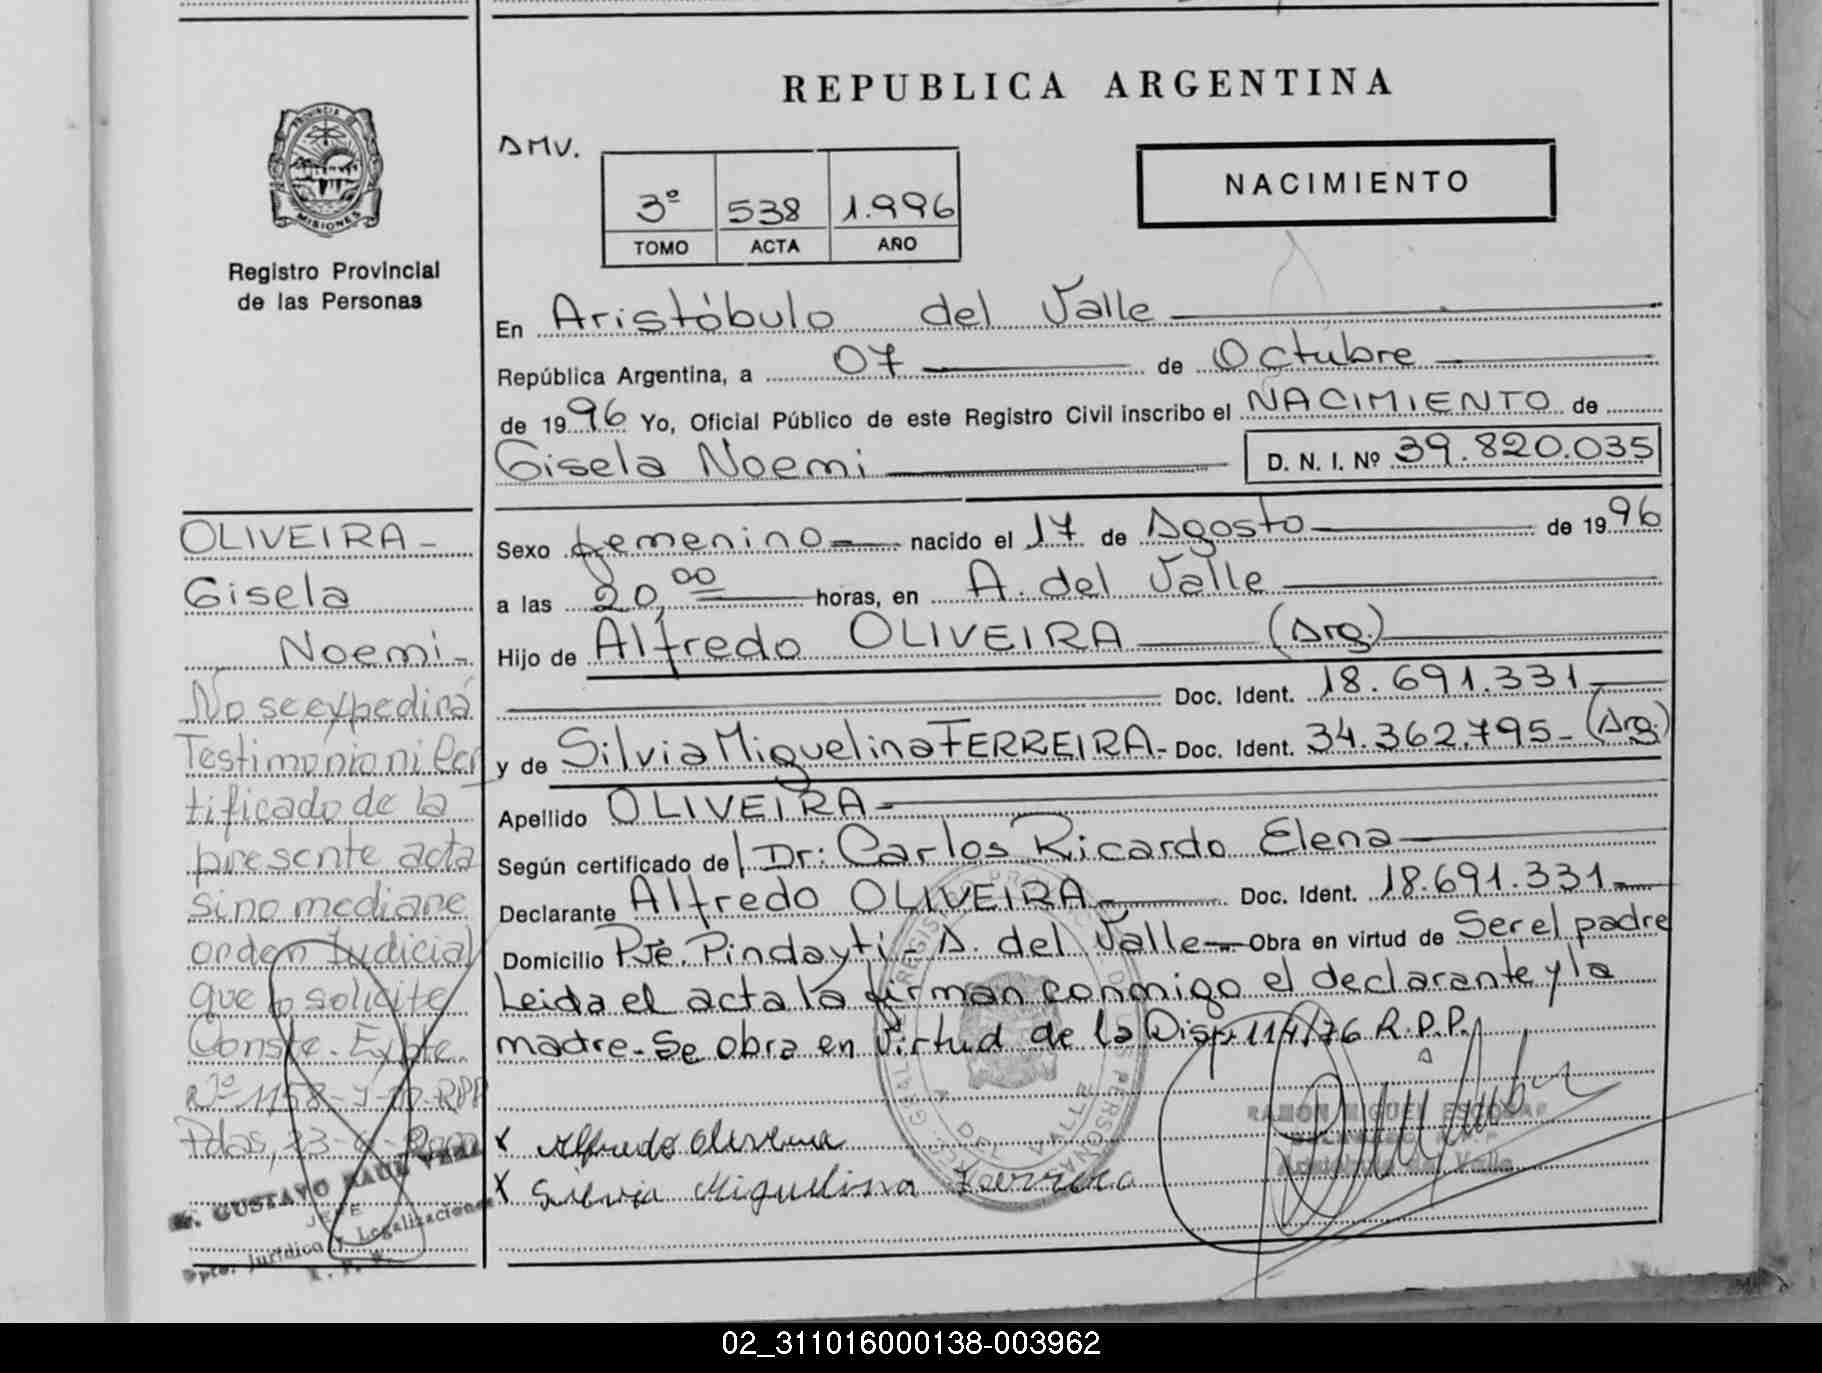 REPUBLICA ARGENTINA
PROVINCIA DE
MISIONES
Registro Provincial
de las Personas
DMV.
3º 538 1.996
TOMO ACTA AÑO
NACIMIENTO
En Aristóbulo del Valle
República Argentina, a 07 de Octubre
de 1996 Yo, Oficial Público de este Registro Civil inscribo el NACIMIENTO de
Gisela Noemi D. N. I. Nº 39.820.035
OLIVEIRA-
Gisela
Noemi-
No se expedirá
Testimonio ni Cer
tificado de la
presente acta
sino mediane
orden Judicial
que lo solicite
Conste. Expte.
Nº 1158-
Pdas, 23-
GUSTAVO RAUL VERA
JEFE
Dpto. Jurídico y Legalizaciones
R. P. P.
Sexo femenino nacido el 17 de Agosto de 1996
a las 20,00 horas, en A. del Valle
Hijo de Alfredo OLIVEIRA (Arg.)
Doc. Ident. 18.691.331
y de Silvia Miguelina FERREIRA- Doc. Ident. 34.362.795- (Arg.)
Apellido OLIVEIRA-
Según certificado de Dr: Carlos Ricardo Elena
Declarante Alfredo OLIVEIRA Doc. Ident. 18.691.331-
Domicilio Pje. Pindayti- A. del Valle- Obra en virtud de Ser el padre
Leida el acta la firman conmigo el declarante y la
madre- Se obra en virtud de la Disp. 114/76 R.P.P.
x Alfredo Oliveira
x Silvia Miguelina Ferreira
RAMON MIGUEL ESCOBAR
Aristóbulo del Valle
02_311016000138-003962